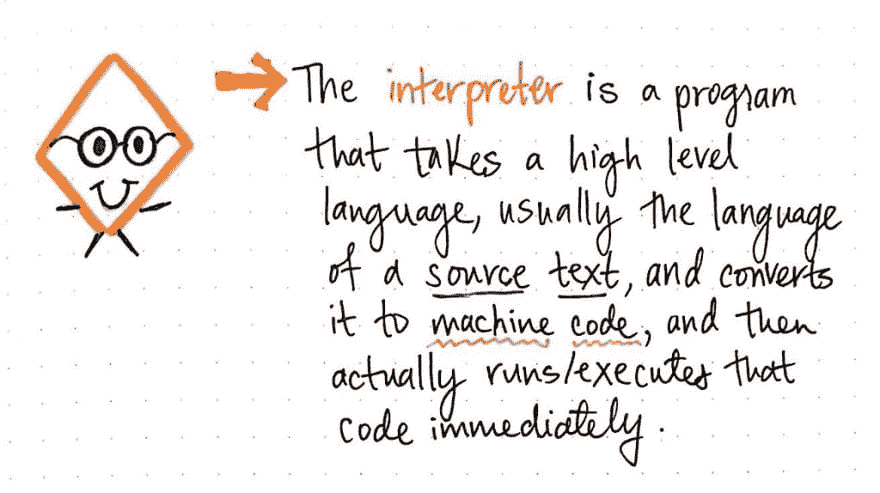 The interpreter is a program
that takes a high level
language, usually the language
of a source text, and converts
it to machine code, and then
actually runs/executes that
code immediately.